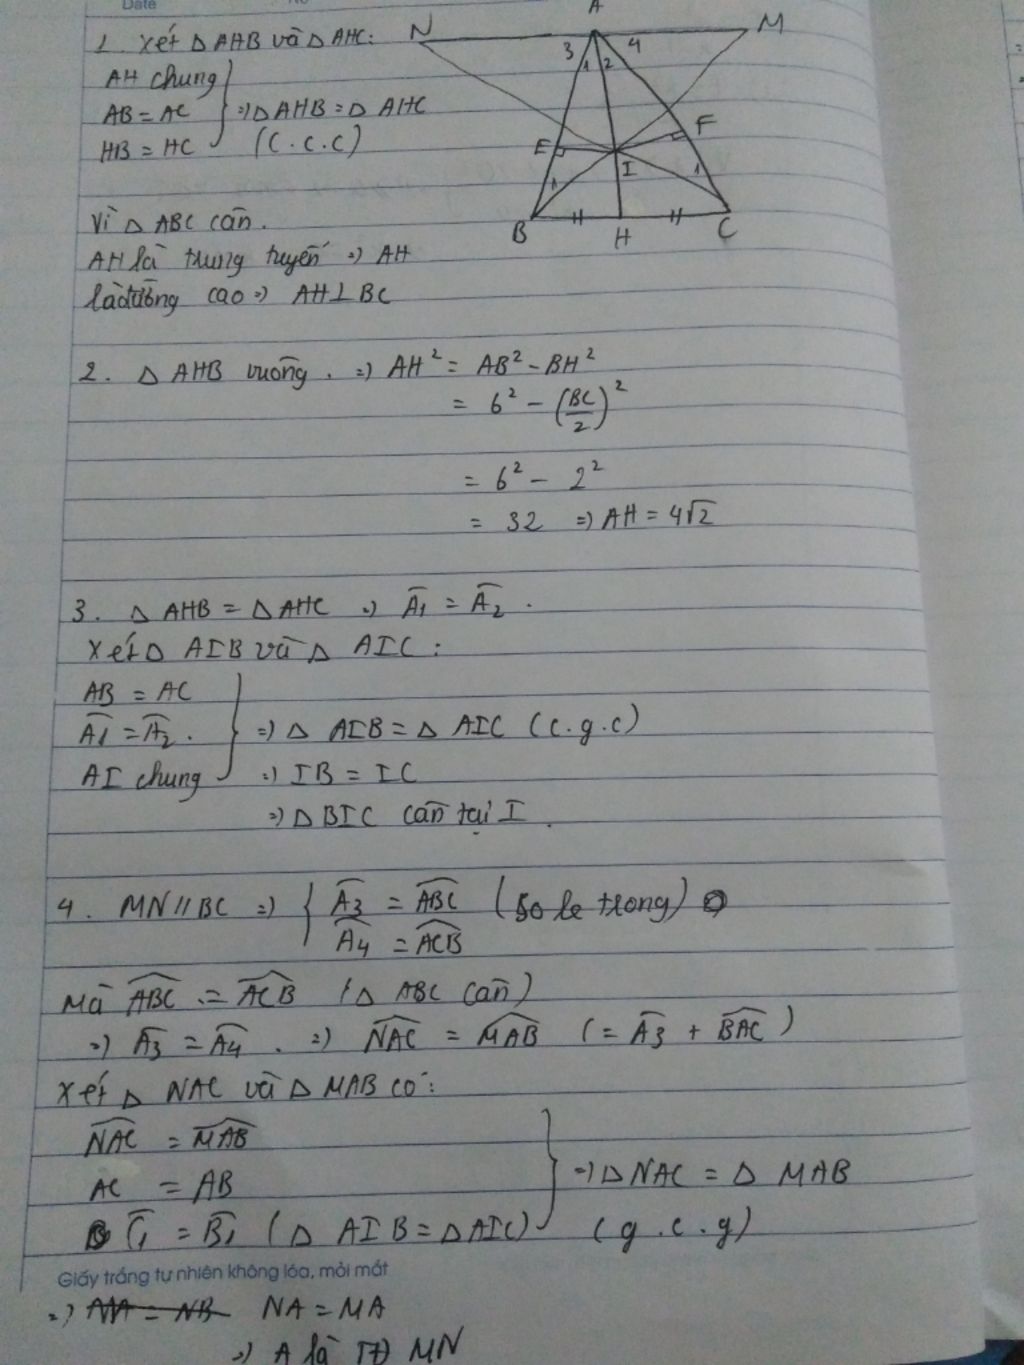 Date
No
1. Xét △ AHB và △ AHC:
AH chung
AB = AC
HB = HC
=> △ AHB = △ AHC
(C.C.C)
N
A
M
3
1
2
4
E
F
I
1
1
B
H
C
Vì △ ABC cân.
AH là trung tuyến => AH
là đường cao => AH ⊥ BC
2. △ AHB vuông. => AH² = AB² - BH²
= 6² - (BC/2)²
= 6² - 2²
= 32 => AH = 4√2
3. △ AHB = △ AHC => Â1 = Â2.
Xét △ AIB và △ AIC:
AB = AC
Â1 = Â2.
AI chung
=> △ AIB = △ AIC (c.g.c)
=> IB = IC
=> △ BIC cân tại I.
4. MN // BC => { Â3 = ABC (so le trong)
Â4 = ACB
Mà ABC = ACB (△ ABC cân)
=> Â3 = Â4. => NAC = MAB (= Â3 + BAC)
Xét △ NAC và △ MAB có:
NAC = MAB
AC = AB
C1 = B1 (△ AIB = △ AIC)
=> △ NAC = △ MAB
(g.c.g)
Giấy trắng tự nhiên không lóa, mỏi mắt
=> NA = MA
=> A là TĐ MN